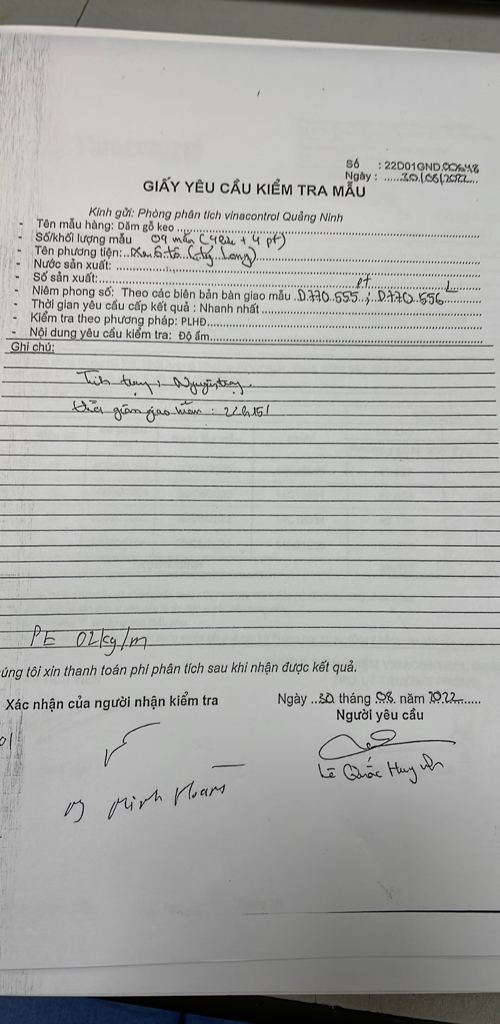 Số : 22D01GND
Ngày : 30/08/2022
GIẤY YÊU CẦU KIỂM TRA MẪU
Kính gửi: Phòng phân tích vinacontrol Quảng Ninh
- Tên mẫu hàng: Dăm gỗ keo
- Số/khối lượng mẫu 09 mẫu + 4 pt)
- Tên phương tiện: Long)
- Nước sản xuất:
- Số sản xuất: pt L
- Niêm phong số: Theo các biên bản bàn giao mẫu D.770.555 ; D.770.556
- Thời gian yêu cầu cấp kết quả : Nhanh nhất
- Kiểm tra theo phương pháp: PLHĐ
- Nội dung yêu cầu kiểm tra: Độ ẩm
Ghi chú:
Tình trạng : Nguyên trạng.
thời gian giao mẫu : 22h15'
PE 02kg/m
úng tôi xin thanh toán phí phân tích sau khi nhận được kết quả.
Xác nhận của người nhận kiểm tra
Ngày 30 tháng 08 năm 2022
Người yêu cầu
Lê Quốc Huynh
Minh